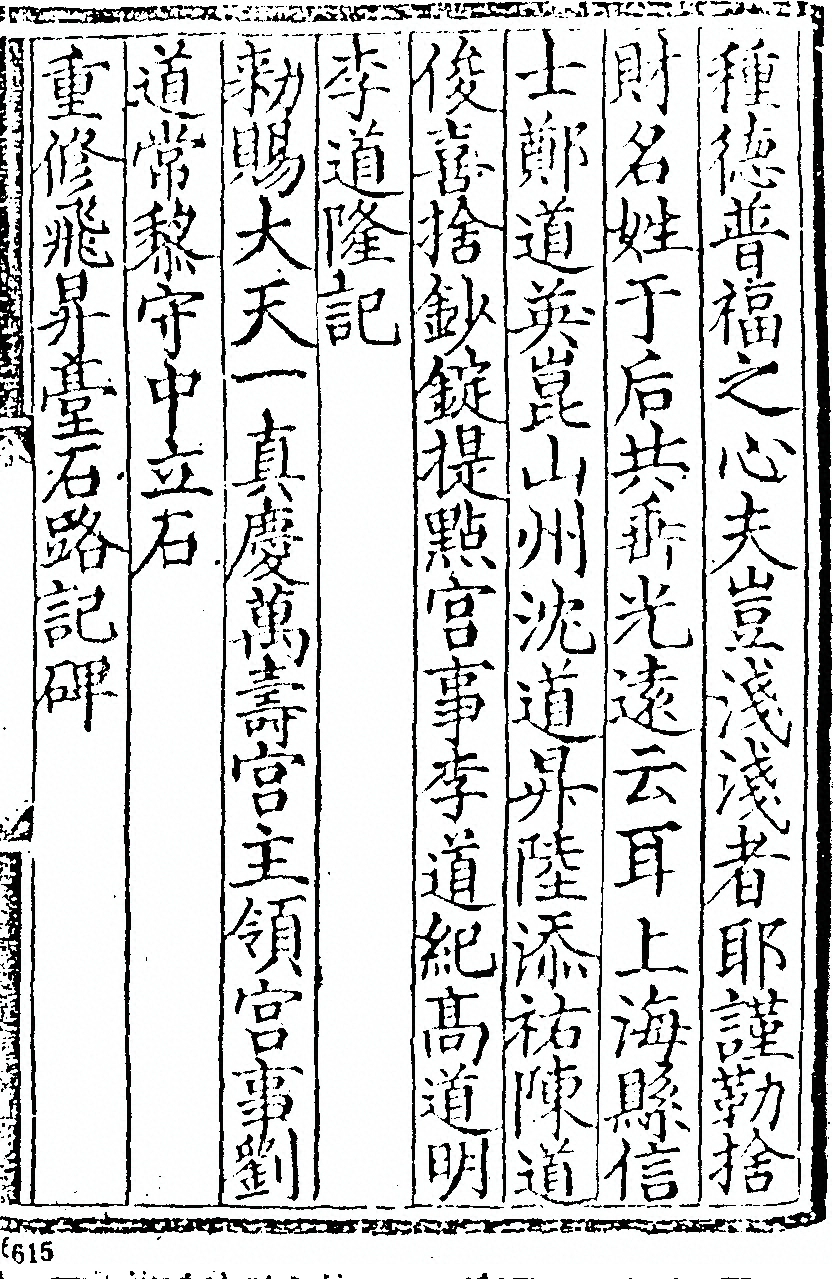 種德普福之心夫豈淺淺者耶謹勒捨
財名姓于后共垂光遠云耳上海縣信
士鄭道英崑山州沈道昇陸添祐陳道
俊喜捨鈔錠提點宮事李道紀高道明
李道隆記
勑賜大天一真慶萬壽宮主領宮事劉
道常黎守中立石
重修飛昇臺石路記碑
615